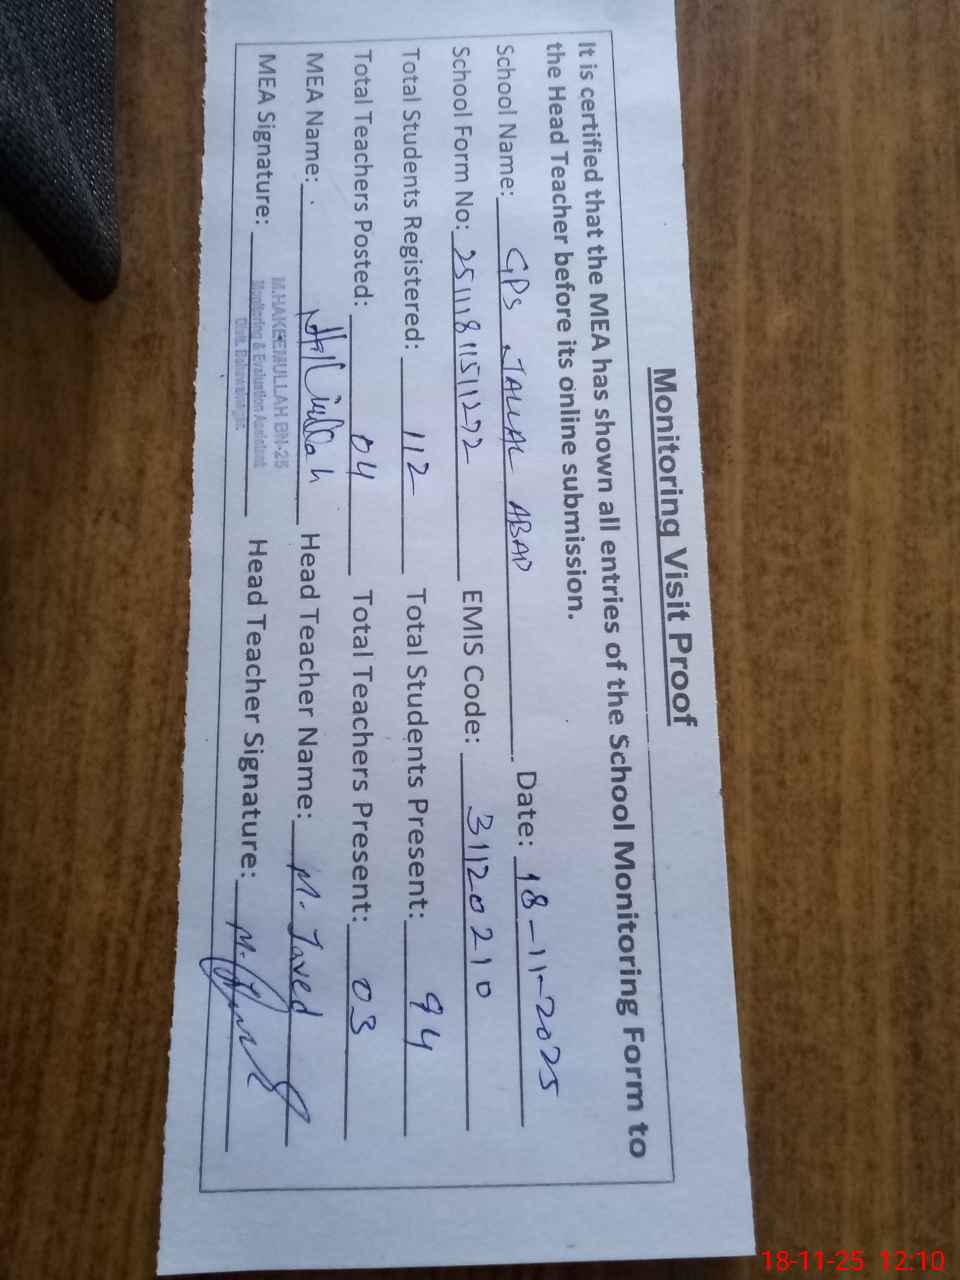 Monitoring Visit Proof
It is certified that the MEA has shown all entries of the School Monitoring Form to
the Head Teacher before its online submission.
School Name: GPS JALLAL ABAD Date: 18-11-2025
School Form No: 25111811511272 EMIS Code: 31120210
Total Students Registered: 112 Total Students Present: 94
Total Teachers Posted: 04 Total Teachers Present: 03
MEA Name: Head Teacher Name: M. Javed
M.HAKEEMULLAH BN-25
MEA Signature: Head Teacher Signature:
Monitoring & Evaluation Assistant
Distt. Bahawalnagar.
18-11-25 12:10